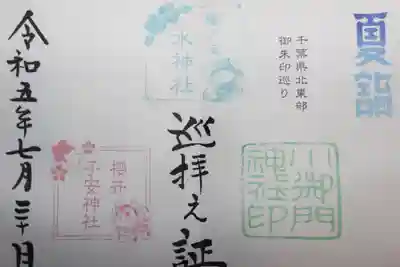 夏詣
千葉県北東部
御朱印巡り
小御門
神社印
水神社
巡拝え証
櫻井
子安神社
令和五年七月三十日